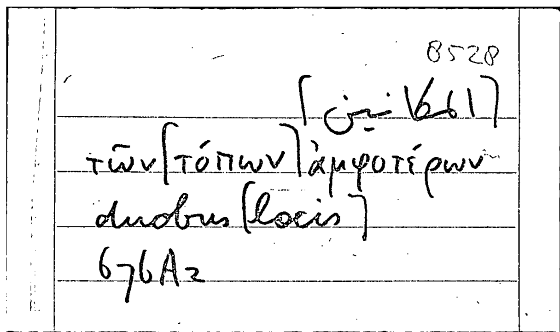 8528
[المكانين]
τῶν [τόπων] ἀμφοτέρων
duobus [locis]
676A2